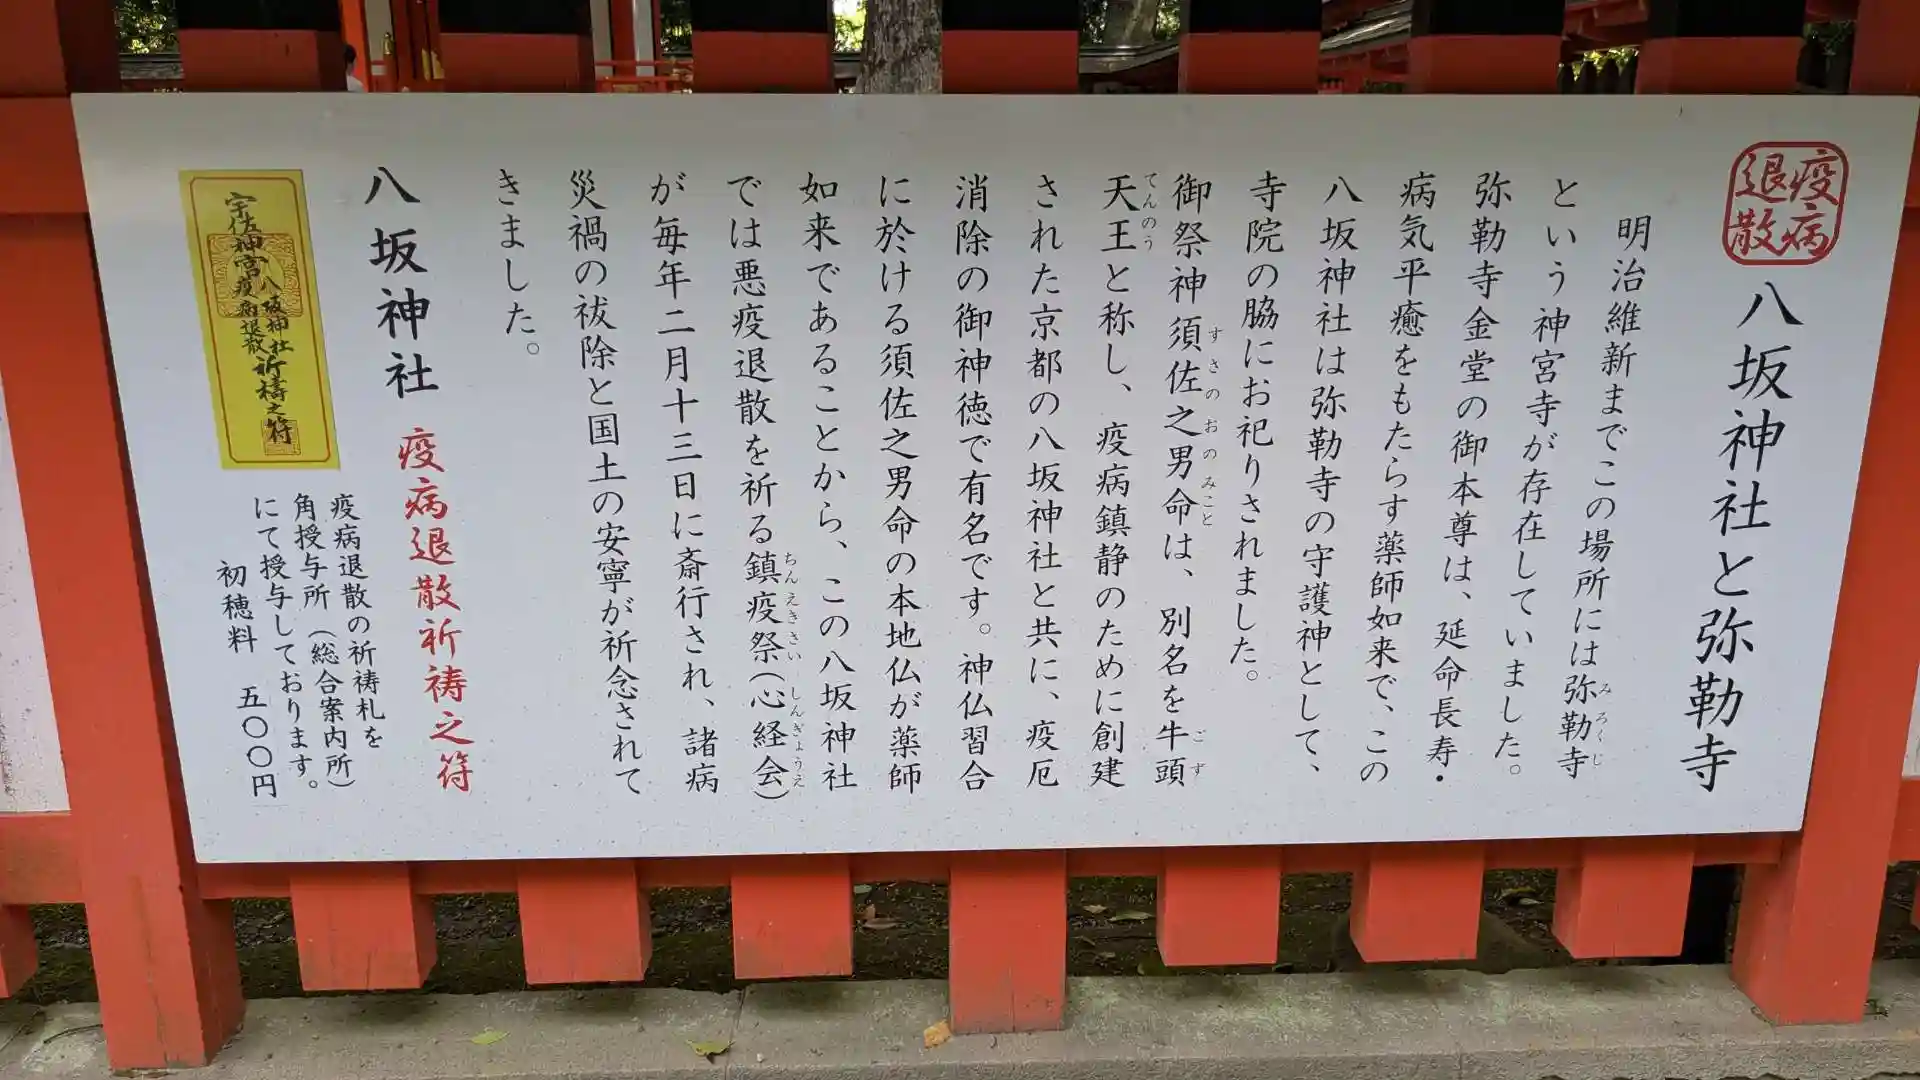 疫病
退散
八坂神社と弥勒寺
明治維新までこの場所には弥勒寺
みろくじ
という神宮寺が存在していました。
弥勒寺金堂の御本尊は、延命長寿・
病気平癒をもたらす薬師如来で、この
八坂神社は弥勒寺の守護神として、
寺院の脇にお祀りされました。
御祭神 須佐之男命は、別名を牛頭
すさのおのみこと
ごず
天王と称し、疫病鎮静のために創建
てんのう
された京都の八坂神社と共に、疫厄
消除の御神徳で有名です。神仏習合
に於ける須佐之男命の本地仏が薬師
如来であることから、この八坂神社
では悪疫退散を祈る鎮疫祭(心経会)
ちんえきさい
しんぎょうえ
が毎年二月十三日に斎行され、諸病
災禍の祓除と国土の安寧が祈念されて
きました。
八坂神社 疫病退散祈祷之符
疫病退散の祈祷札を
角授与所(総合案内所)
にて授与しております。
初穂料 五〇〇円
八坂神社
疫病退散
祈祷之符
宇佐神宮